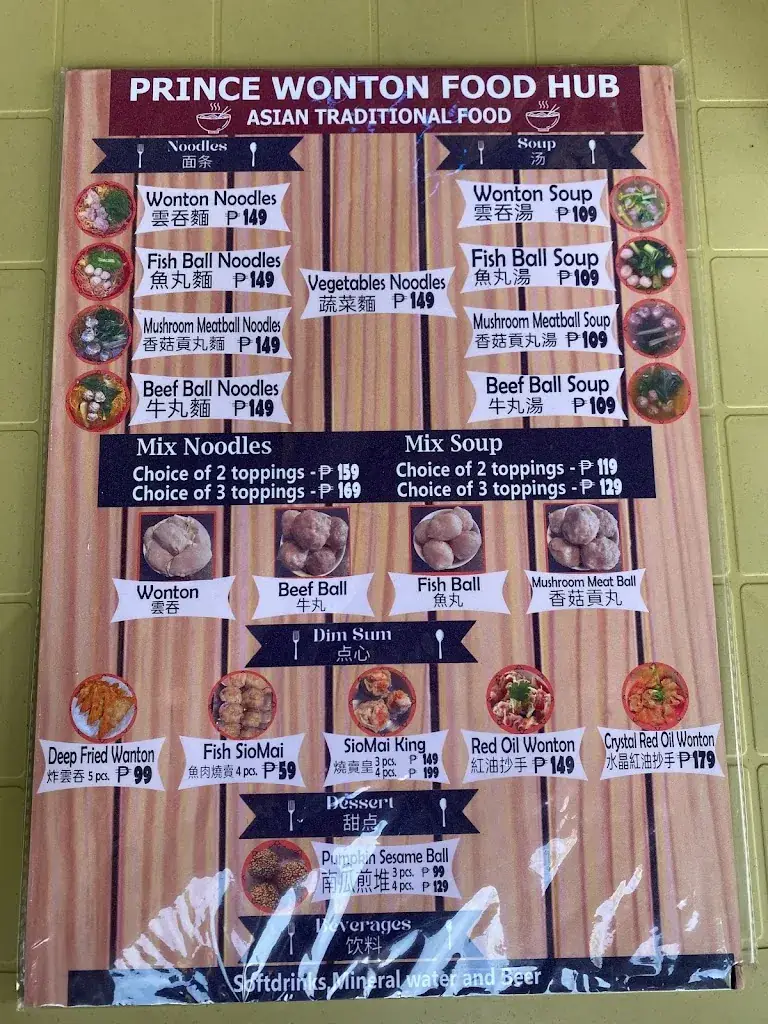 PRINCE WONTON FOOD HUB
ASIAN TRADITIONAL FOOD
Noodles
面条
Wonton Noodles
雲吞麵 ₱149
Fish Ball Noodles
魚丸麵 ₱149
Mushroom Meatball Noodles
香菇貢丸麵 ₱149
Beef Ball Noodles
牛丸麵 ₱149
Vegetables Noodles
蔬菜麵 ₱149
Soup
汤
Wonton Soup
雲吞湯 ₱109
Fish Ball Soup
魚丸湯 ₱109
Mushroom Meatball Soup
香菇貢丸湯 ₱109
Beef Ball Soup
牛丸湯 ₱109
Mix Noodles
Choice of 2 toppings - ₱ 159
Choice of 3 toppings - ₱ 169
Mix Soup
Choice of 2 toppings - ₱ 119
Choice of 3 toppings - ₱ 129
Wonton
雲吞
Beef Ball
牛丸
Fish Ball
魚丸
Mushroom Meat Ball
香菇貢丸
Dim Sum
点心
Deep Fried Wanton
炸雲吞 5 pcs. ₱ 99
Fish SioMai
魚肉燒賣 4 pcs. ₱59
SioMai King
燒賣皇 3 pcs. ₱ 149
4 pcs. ₱ 199
Red Oil Wonton
紅油抄手 ₱ 149
Crystal Red Oil Wonton
水晶紅油抄手 ₱179
Dessert
甜点
Pumpkin Sesame Ball
南瓜煎堆 3 pcs. ₱ 99
4 pcs. ₱ 129
Beverages
饮料
Softdrinks, Mineral water and Beer